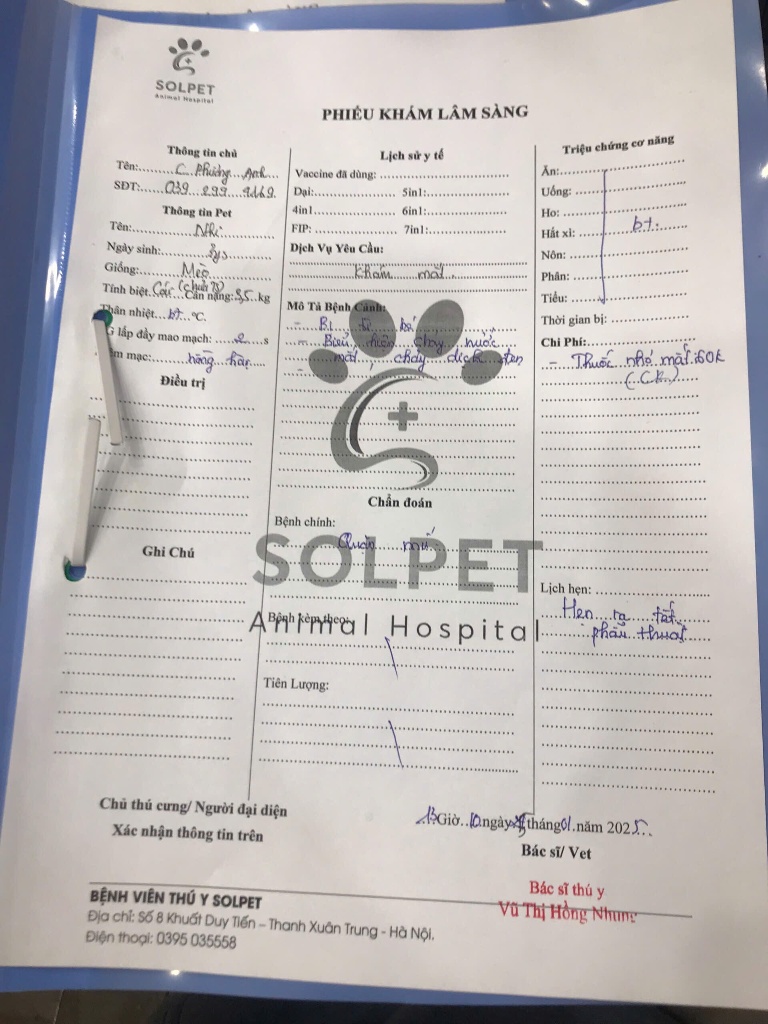 SOLPET
Animal Hospital
PHIẾU KHÁM LÂM SÀNG
Thông tin chủ
Tên:.........C Phương Anh
SĐT:.....039 299
Thông tin Pet
Tên:.........Nhi
Ngày sinh:.......
Giống:.......Mèo
Tính biệt Cái...Cân nặng:3,5..kg
Thân nhiệt...bt..°C.
G lấp đầy mao mạch:....2....s
êm mạc:..........hồng hào....
Điều trị
Ghi Chú
Lịch sử y tế
Vaccine đã dùng:
Dại:.................... 5in1:....................
4in1.................... 6in1:....................
FIP:.................... 7in1:....................
Dịch Vụ Yêu Cầu:
Khám mắt
Mô Tả Bệnh Cảnh:
- Bị từ bé
- Biểu hiện chảy nước
mắt, chảy dịch đen
-
Chẩn đoán
Bệnh chính:
Quặm mí
SOLPET
Animal Hospital
Bệnh kèm theo:
Tiên Lượng:
Triệu chứng cơ năng
Ăn:
Uống:
Ho:
Hắt xì: bt.
Nôn:
Phân:
Tiểu:
Thời gian bị:
Chi Phí:
- Thuốc nhỏ mắt:60k
(CK)
Lịch hẹn:
Hẹn ra tết
phẫu thuật
Chủ thú cưng/ Người đại diện
Xác nhận thông tin trên
13.Giờ..10.ngày tháng01.năm 2025...
Bác sĩ/ Vet
Bác sĩ thú y
Vũ Thị Hồng Nhung
BỆNH VIỆN THÚ Y SOLPET
Địa chỉ: Số 8 Khuất Duy Tiến – Thanh Xuân Trung - Hà Nội.
Điện thoại: 0395 035558